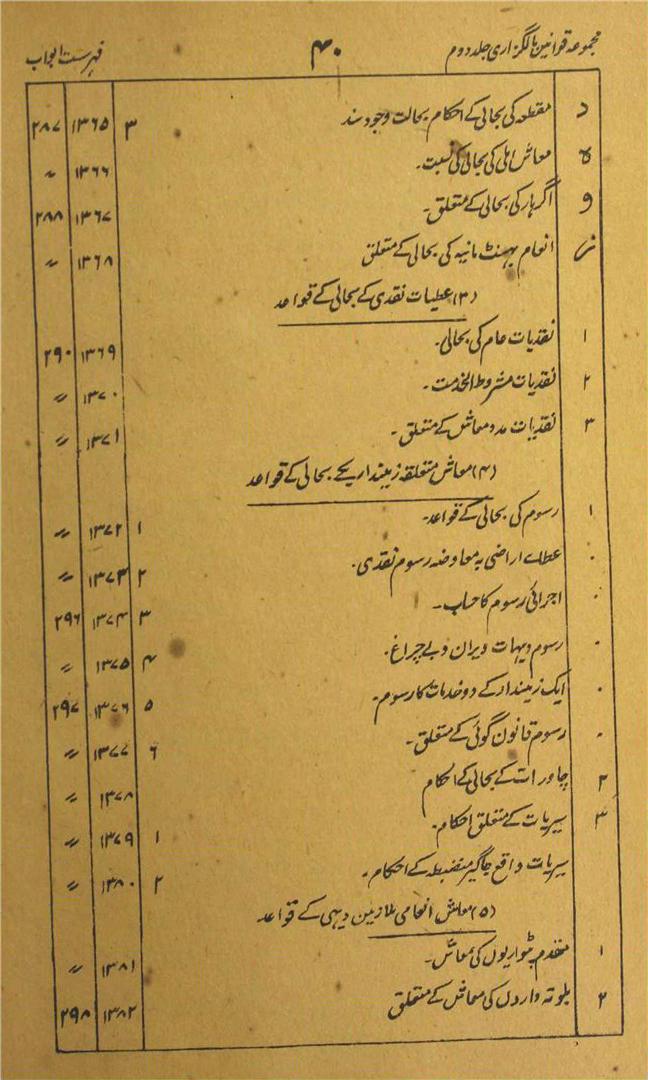 مجموعہ قوانین مالگزاری جلد دوم ۴۰ فہرست ابواب
د مقطعہ کی بحالی کے احکام بحالت وجود سند ۳ ۱۳۶۵ ۲۸۷
ہ معاش اہلی کی بحالی کی نسبت۔ ۱۳۶۶ 〃
و اگرہار کی بحالی کے متعلق۔ ۱۳۶۷ ۲۸۸
ز انعام بہنٹ مانیہ کی بحالی کے متعلق ۱۳۶۸ 〃
(۳) عطیات نقدی کے بحالی کے قواعد
۱ نقدیات عام کی بحالی۔ ۱۳۶۹ ۲۹۰
۲ نقدیات مشروط الخدمت۔ ۱۳۷۰ 〃
۳ نقدیات مدد معاش کے متعلق۔ ۱۳۷۱ 〃
(۴) معاش متعلقہ زمینداری کے بحالی کے قواعد
۱ رسوم کی بحالی کے قواعد۔ ۱ ۱۳۷۲ 〃
۰ عطاے اراضی بہ معاوضہ رسوم نقدی۔ ۲ ۱۳۷۳ 〃
۰ اجرائی رسوم کا حساب۔ ۳ ۱۳۷۴ ۲۹۶
۰ رسوم دیہات ویران و بے چراغ۔ ۴ ۱۳۷۵ 〃
۰ ایک زمیندار کے دو خدمات کا رسوم۔ ۵ ۱۳۷۶ ۲۹۷
۰ رسوم قانون گوئی کے متعلق۔ ۶ ۱۳۷۷ 〃
۲ چاورات کے بحالی کے احکام ۱۳۷۸ 〃
۳ سیریات کے متعلق احکام۔ ۱ ۱۳۷۹ 〃
سیریات واقع جاگیر منضبطہ کے احکام۔ ۲ ۱۳۸۰ 〃
(۵) معاش انعامی ملازمین دیہی کے قواعد
۱ مقدم پٹواریوں کی معاش۔ ۱۳۸۱ 〃
۲ بلوتہ داروں کی معاش کے متعلق ۱۳۸۲ ۲۹۸